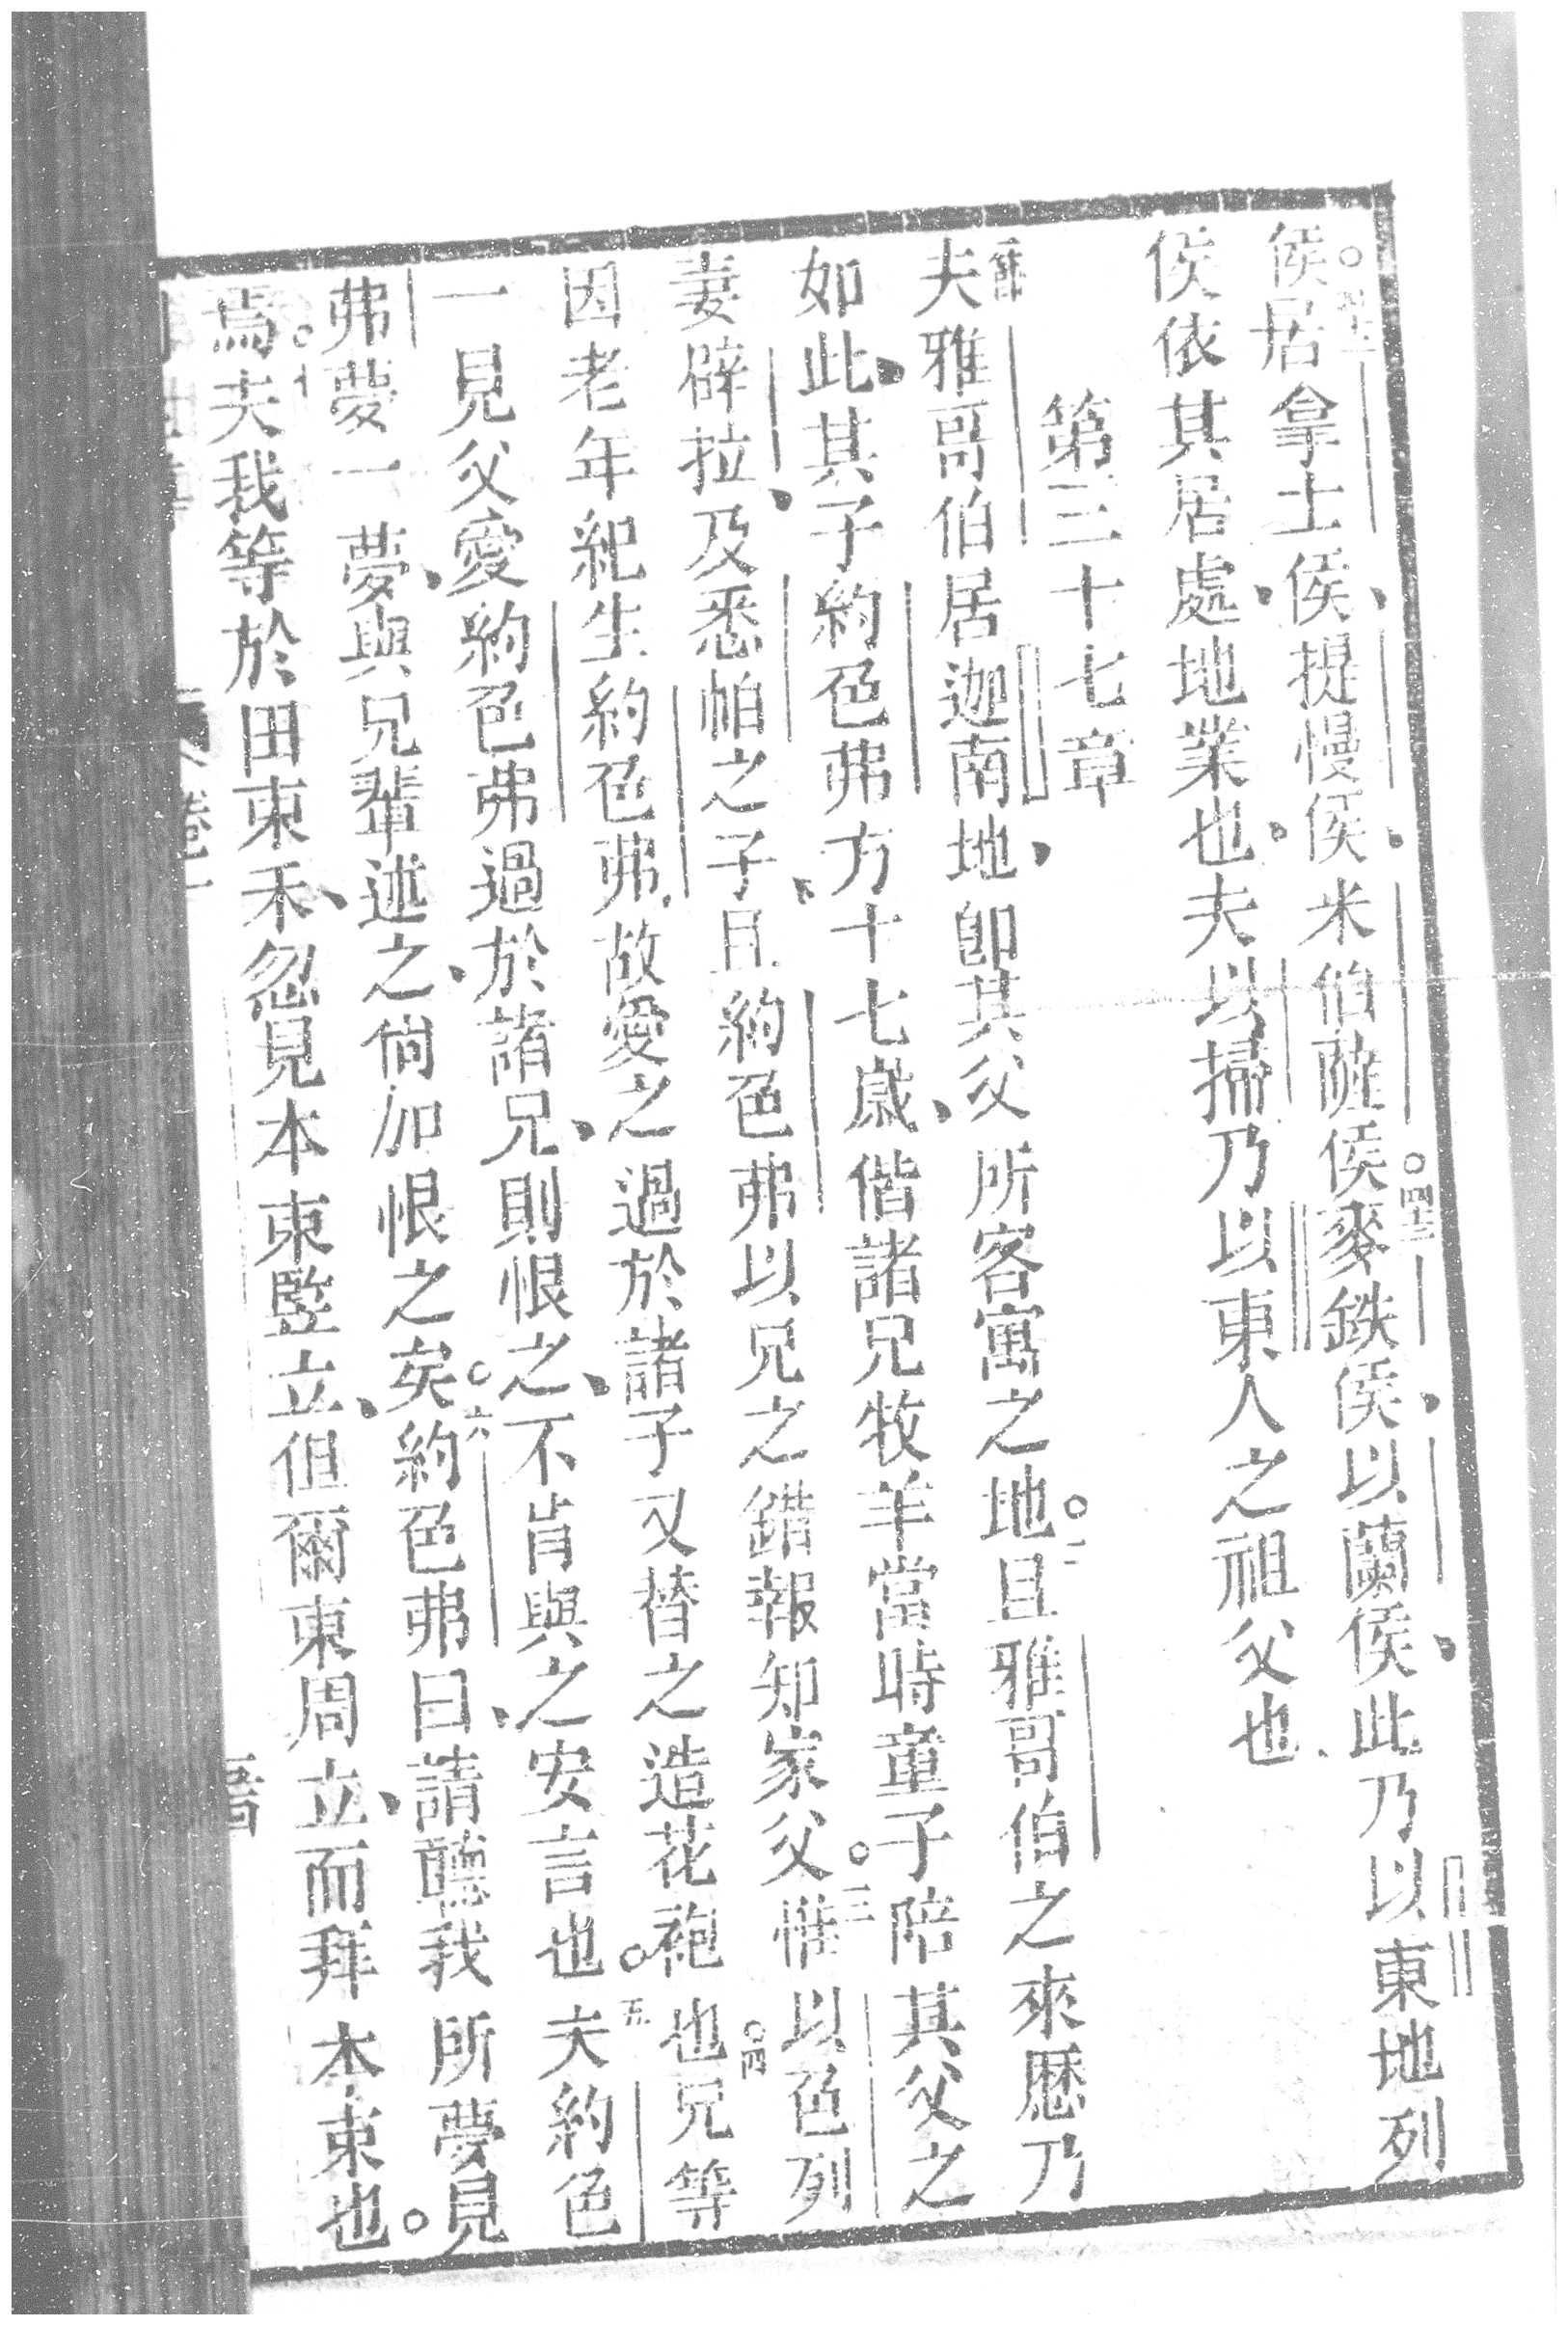 侯居拿士侯提慢侯米伯薩侯。四三麥鉄侯以蘭侯此乃以東地列
侯依其居處地業也。夫以掃乃以東人之祖父也
第三十七章
夫雅哥伯居迦南地即其父所客寓之地。二且雅哥伯之來歷乃
如此其子約色弗方十七歲偕諸兄牧羊當時童子陪其父之
妻辟拉及悉帕之子且約色弗以兄之錯報知家父。三惟以色列
因老年紀生約色弗故愛之過於諸子又替之造花袍也。四兄等
一見父愛約色弗過於諸兄則恨之不肯與之安言也。五夫約色
弗夢一夢與兄輩述之倘加恨之矣。六約色弗曰請聽我所夢見
焉。七夫我等於田束禾忽見本束竪立但爾束周立而拜本束也。